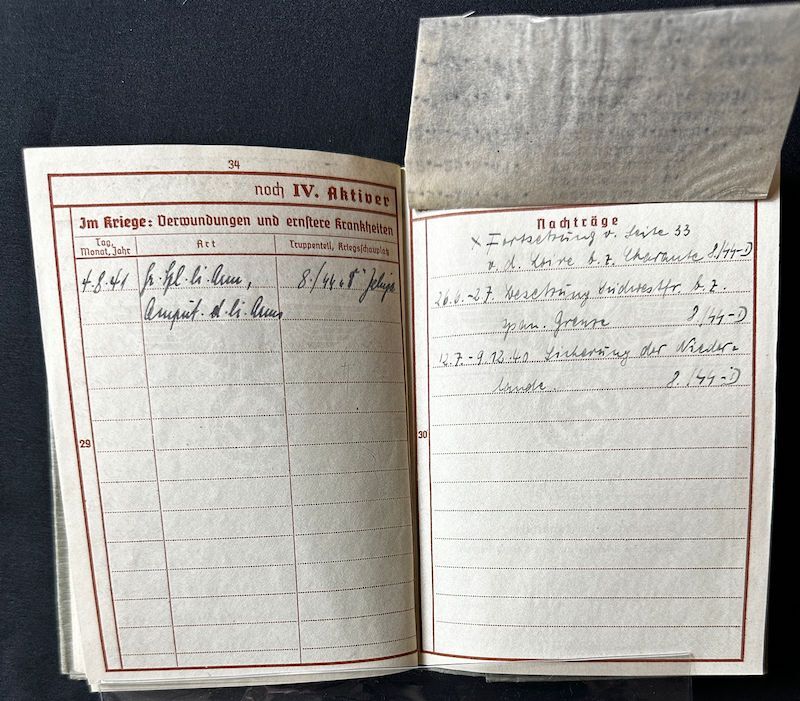 34
noch IV. Aktiver
Im Kriege: Verwundungen und ernstere Krankheiten
Tag, Monat, Jahr
Art
Truppenteil, Kriegsschauplatz
4.8.41 Gr. Spl. li. Arm, 8./44
Amput. d. li. Arms
29
Nachträge
x Fortsetzung v. Seite 33
v. d. Loire b. z. Charante 8./44-D
-27. Besetzung Südwestfr. b. z.
span. Grenze 8/44-D
12.7.-9.12.40 Sicherung der Nieder-
lande. 8./44-D
30